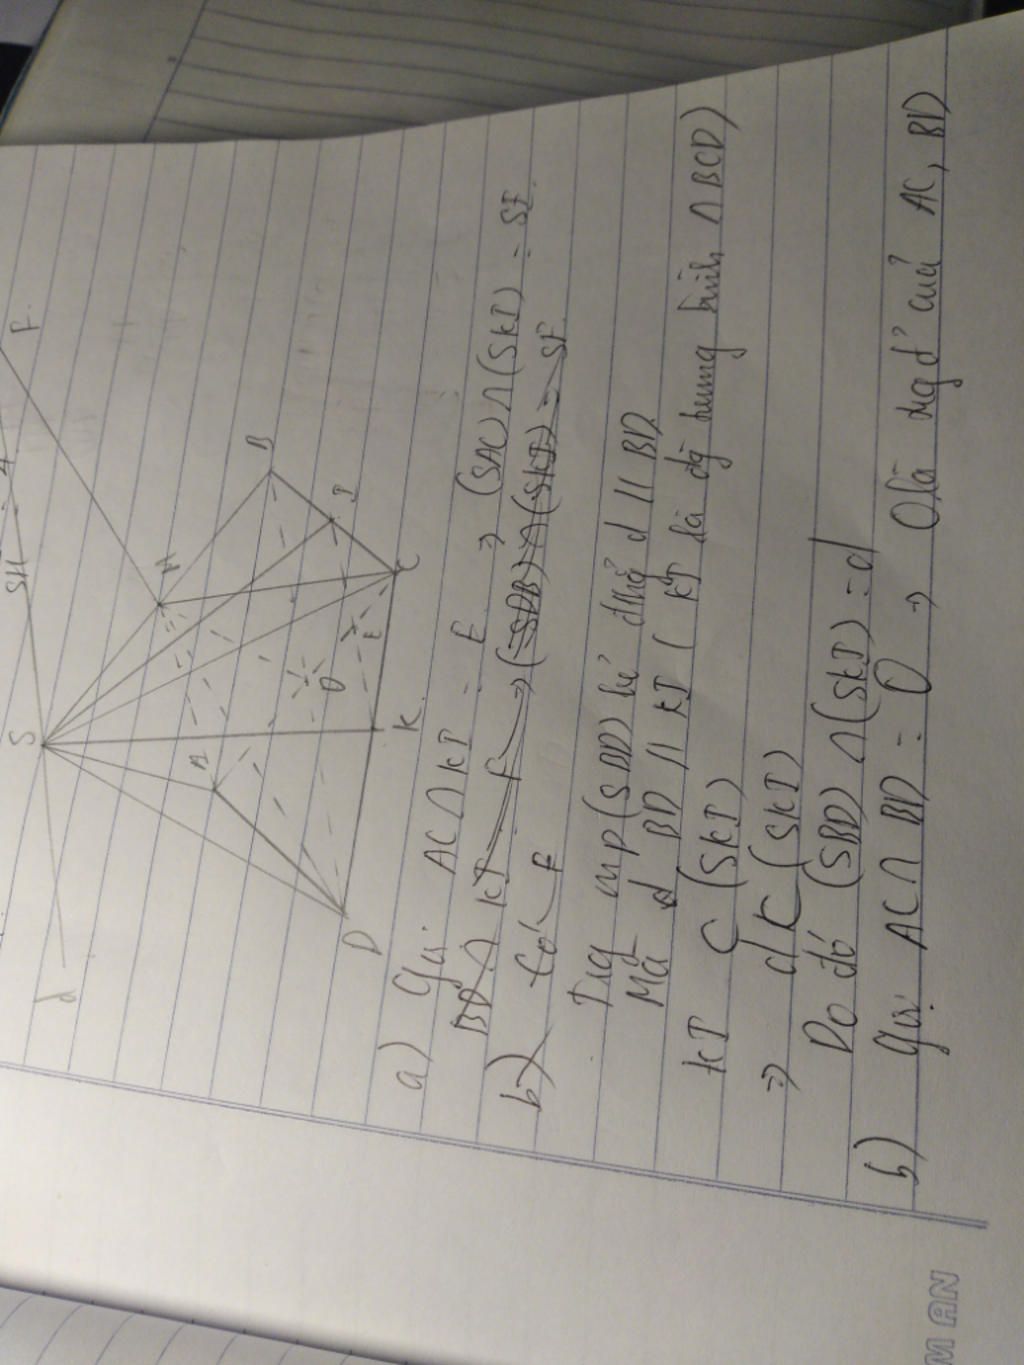 S
SH
F
d
A
M
B
I
O
E
C
D
K
a) Gọi AC ∩ KI = E ⇒ (SAC) ∩ (SKI) = SE.
BD ∩ KI = F ⇒ (SDB) ∩ (SKI) = SF
b) Có F
Trg mp (SBD) kẻ đthẳ d // BD
Mà BD // KI ( KI là đg trung bình △ BCD)
KI ⊂ (SKI)
⇒ d ⊂ (SKI)
Do đó (SBD) ∩ (SKI) = d
b) Gọi AC ∩ BD = O ⇒ O là trg đ' của AC, BD
M AN